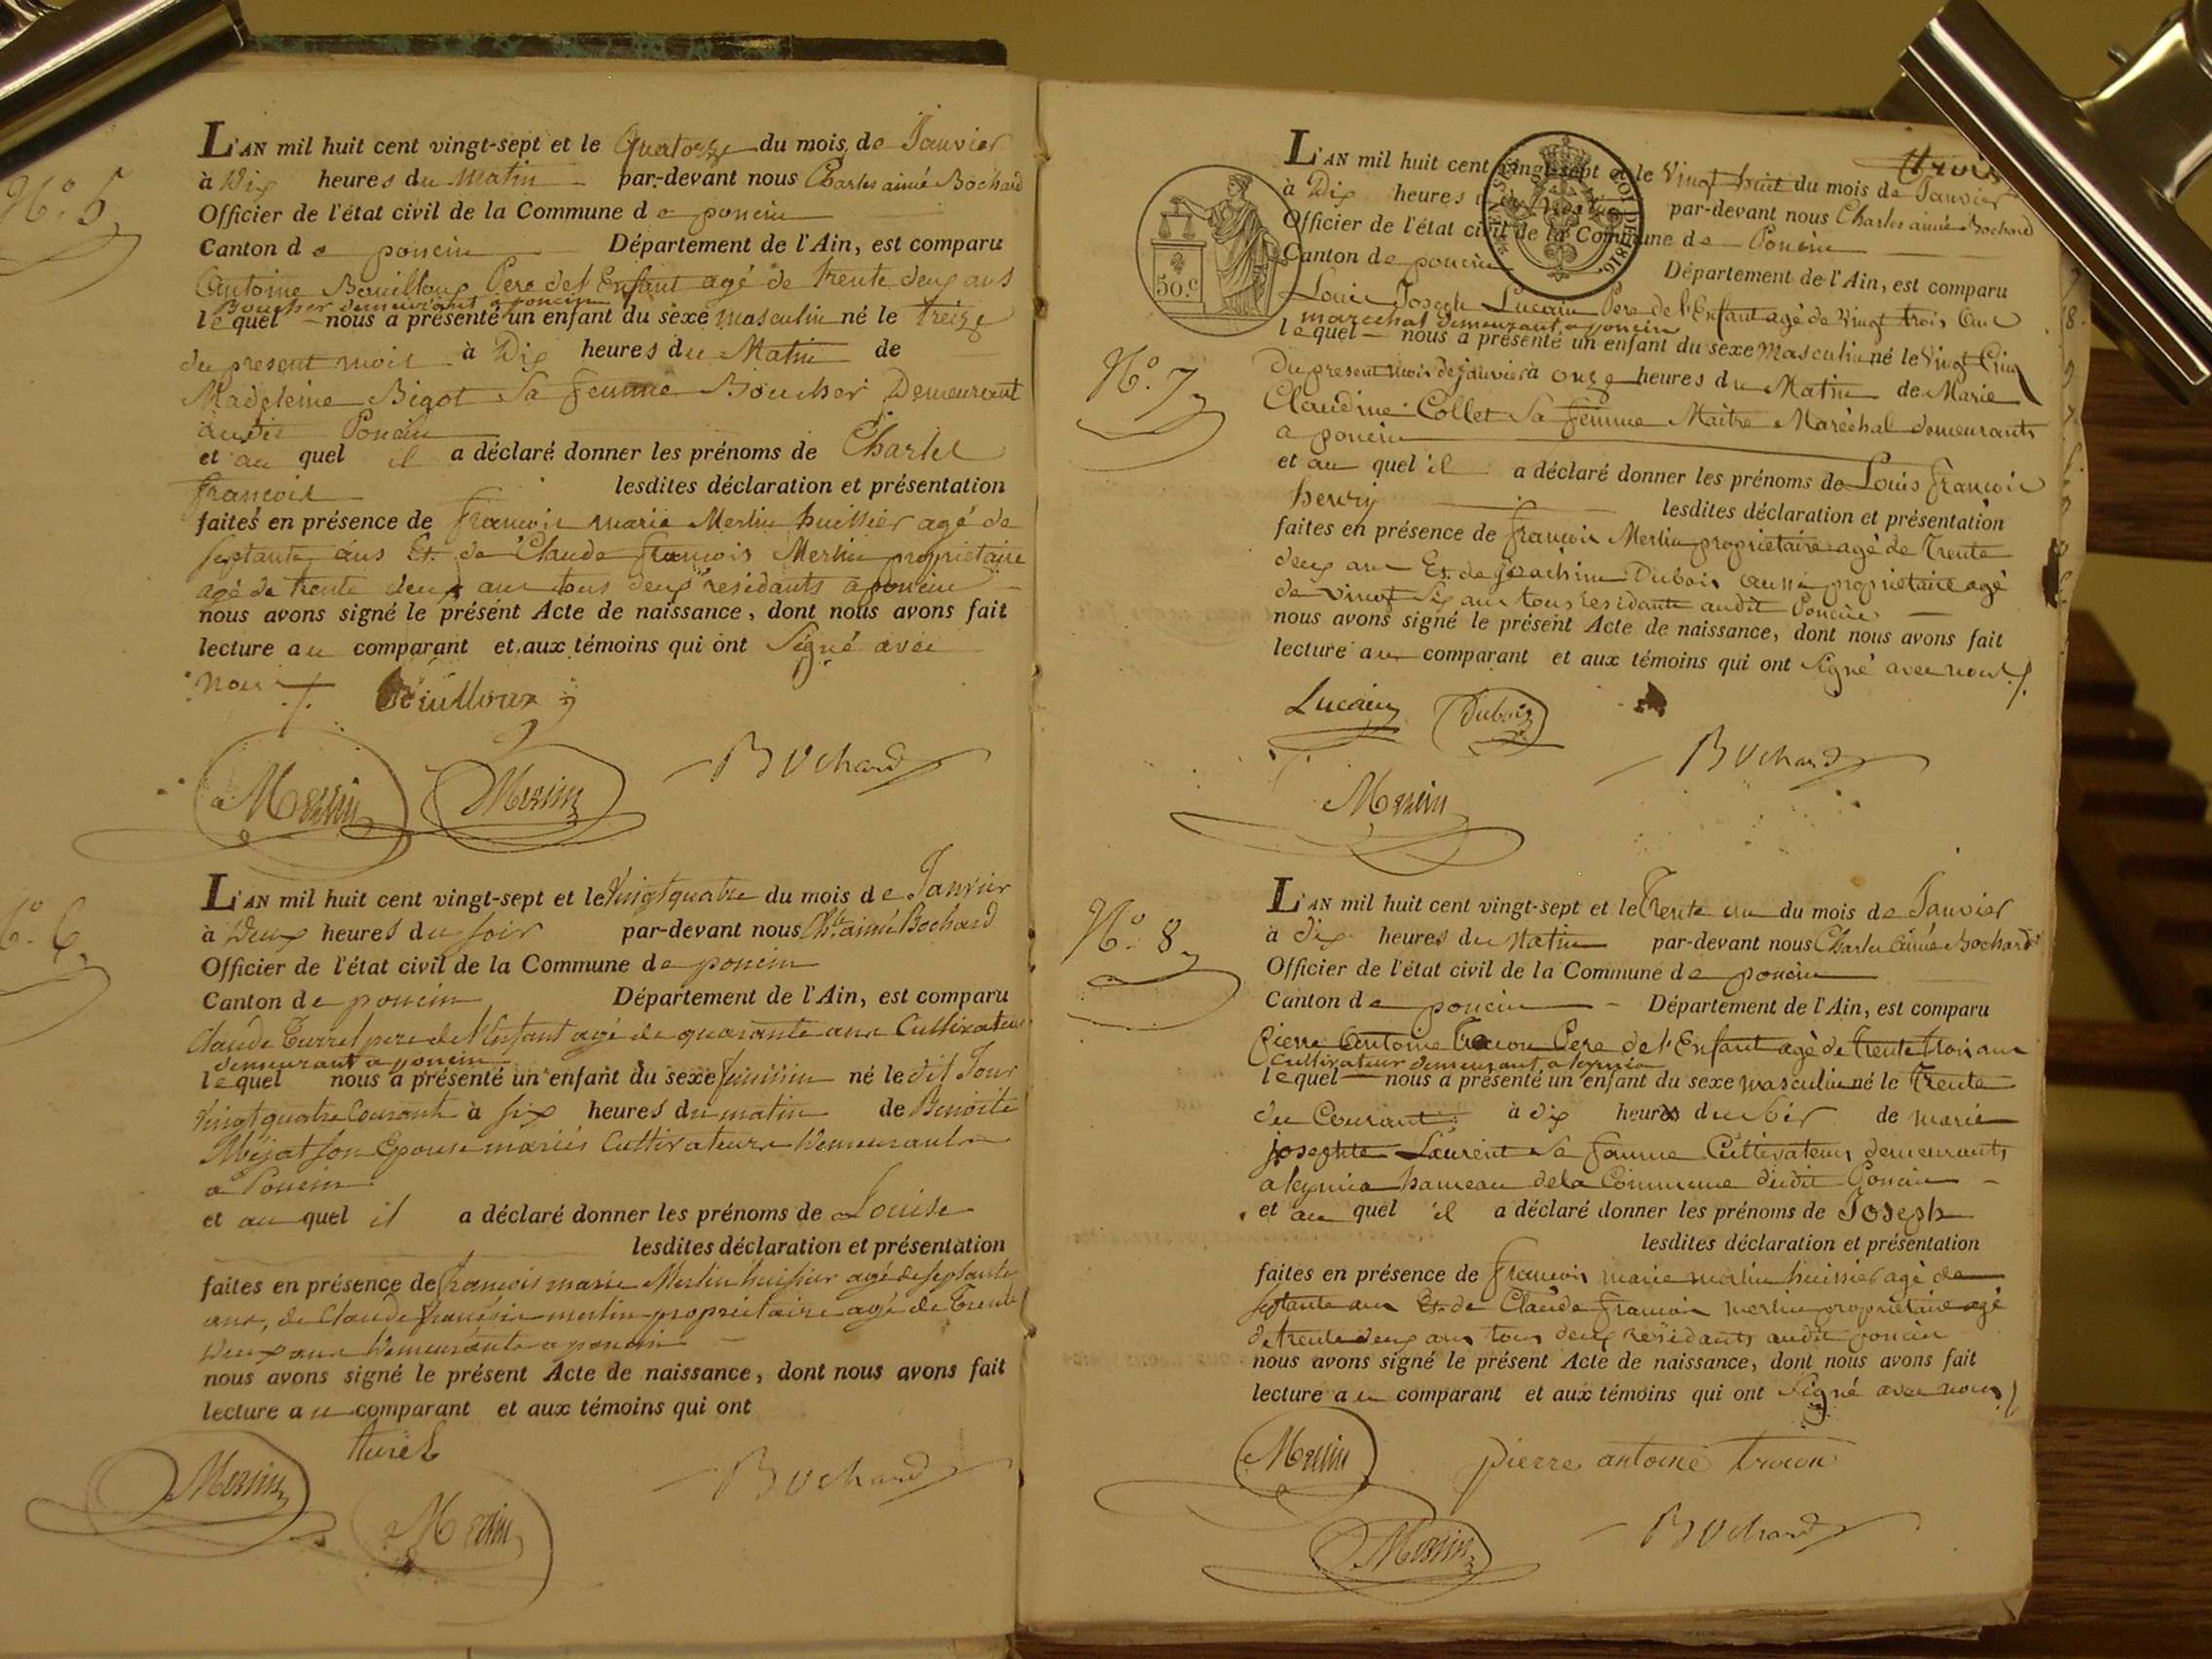 N.° 5
L'AN mil huit cent vingt-sept et le Quatorze du mois de Janvier
à Dix heures du matin par-devant nous Charles aimé Bochard
Officier de l'état civil de la Commune de poncin
Canton de poncin Département de l'Ain, est comparu
Antoine Bouilloux Pere de l'Enfant agé de trente deux ans
Boucher demeurant a poncin
lequel nous a présenté un enfant du sexe masculin né le treize
du present mois à Dix heures du Matin de
Madeleine Bigot Sa femme Boucher Demeurant
audit Poncin
et au quel il a déclaré donner les prénoms de Charles
françois lesdites déclaration et présentation
faites en présence de françois marie Merlin huissier agé de
septante ans Et de Claude françois Merlin propriétaire
agé de trente deux ans tous deux residants a poncin
nous avons signé le présent Acte de naissance, dont nous avons fait
lecture au comparant et aux témoins qui ont Signé avec
nous
Bouilloux
Merlin Merlin Bochard
N.° 6
L'AN mil huit cent vingt-sept et le Vingt quatre du mois de Janvier
à Deux heures du soir par-devant nous Ch.les aimé Bochard
Officier de l'état civil de la Commune de poncin
Canton de poncin Département de l'Ain, est comparu
Claude Turrel pere de l'Enfant agé de quarante ans Cultivateur
demeurant a poncin
lequel nous a présenté un enfant du sexe feminin né le dit Jour
Vingt quatre Courant à six heures du matin de Benoite
Méjat son Epouse mariés Cultivateurs Demeurants
a Poncin
et au quel il a déclaré donner les prénoms de Louise
lesdites déclaration et présentation
faites en présence de françois marie Merlin huissier agé de septante
ans, de Claude françois merlin propriétaire agé de Trente
Deux ans Demeurants a poncin
nous avons signé le présent Acte de naissance, dont nous avons fait
lecture au comparant et aux témoins qui ont
turel
Merlin Merlin Bochard
trois
50.c
1816
N.° 7
L'AN mil huit cent vingt-sept et le Vingt huit du mois de Janvier
à Dix heures du Matin par-devant nous Charles aimé Bochard
Officier de l'état civil de la Commune de Poncin
Canton de poncin Département de l'Ain, est comparu
Louis Joseph Lucain Pere de l'Enfant agé de Vingt trois Ans
marechal demeurant a poncin
lequel nous a présenté un enfant du sexe Masculin né le Vingt Cinq
Du present mois de janvier à onze heures du Matin de Marie
Claudine Collet Sa femme Maitre Maréchal demeurants
a poncin
et au quel il a déclaré donner les prénoms de Louis françois
henry lesdites déclaration et présentation
faites en présence de françois Merlin propriétaire agé de Trente
deux ans Et de Joachim Dubois aussi propriétaire agé
de vingt six ans tous residants audit Poncin
nous avons signé le présent Acte de naissance, dont nous avons fait
lecture au comparant et aux témoins qui ont signé avec nous
Lucain Dubois
Bochard
Merlin
N.° 8
L'AN mil huit cent vingt-sept et le Trente un du mois de Janvier
à dix heures du Matin par-devant nous Charles Aimé Bochard
Officier de l'état civil de la Commune de poncin
Canton de poncin Département de l'Ain, est comparu
Pierre Antoine Trocon Pere de l'Enfant agé de trente trois ans
Cultivateur demeurant a
lequel nous a présenté un enfant du sexe masculin né le Trente
du Courant à dix heures du Soir de marie
josephte Laurent Sa femme Cultivateurs demeurants
a hameau de la Commune dudit Poncin
et au quel il a déclaré donner les prénoms de Joseph
lesdites déclaration et présentation
faites en présence de françois marie merlin huissier agé de
septante ans Et de Claude françois merlin propriétaire agé
de trente deux ans tous deux residants audit poncin
nous avons signé le présent Acte de naissance, dont nous avons fait
lecture au comparant et aux témoins qui ont Signé avec nous
Merlin pierre antoine trocon
Merlin Bochard